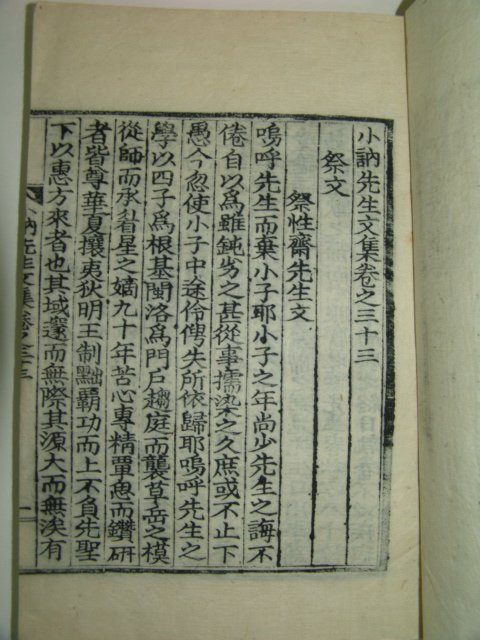 小訥先生文集卷之三十三
祭文
祭性齋先生文
嗚呼先生而棄小子耶小子之年尚少先生之誨不
倦自以爲雖鈍劣之甚從事擩染之久庶或不止下
愚今忽使小子中途伶俜失所依歸耶嗚呼先生之
學以四子爲根基閩洛爲門戶趨庭而襲草岳之模
從師而承眉星之嫡九十年苦心專精覃思而鑽硏
者皆尊華夏攘夷狄明王制黜覇功而上不負先聖
下以惠方來者也其域邃而無際其源大而無涘有
小訥先生文集卷之三十三
一